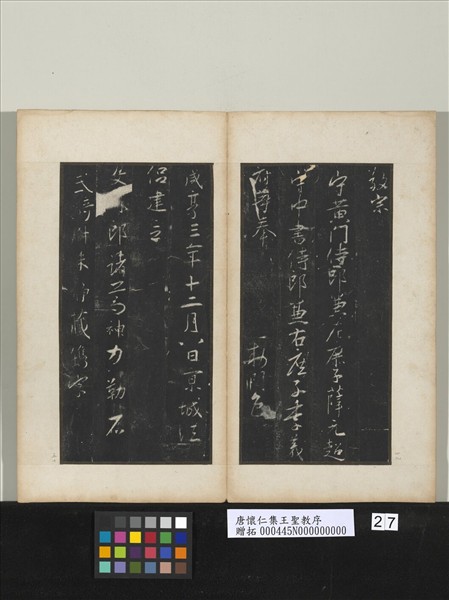 敬宗
守黄門侍郎兼左庶子薛元超
守中書侍郎兼右庶子李義
府等奉
勅潤色
咸亨三年十二月八日京城法
侶建立
文 郎諸葛神力勒石
武騎尉朱 藏鐫字
唐懷仁集王聖教序
贈拓 000445N000000000
27